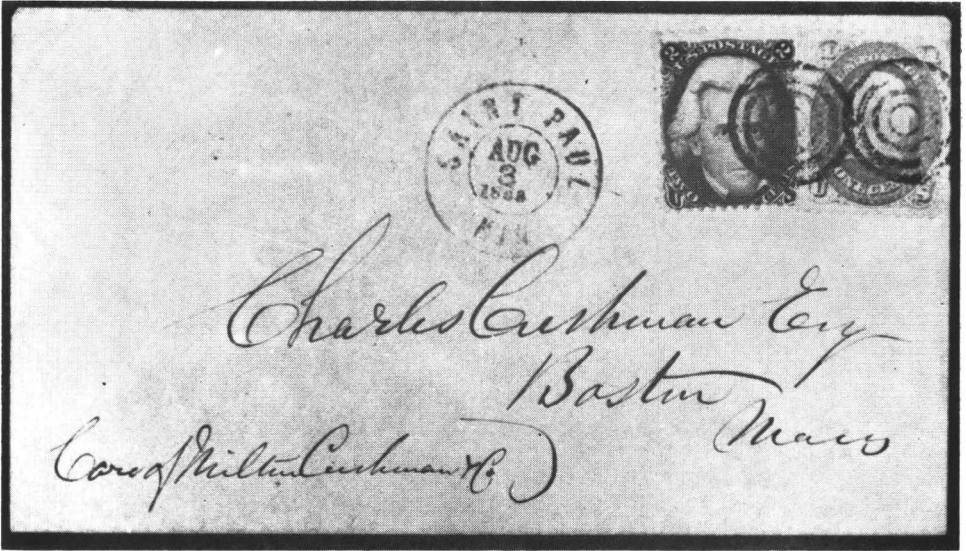 SAINT PAUL
AUG
3
MIN
POSTAGE
Charles Cushman Esq
Boston
Mass
Care of Milton Cushman & Co